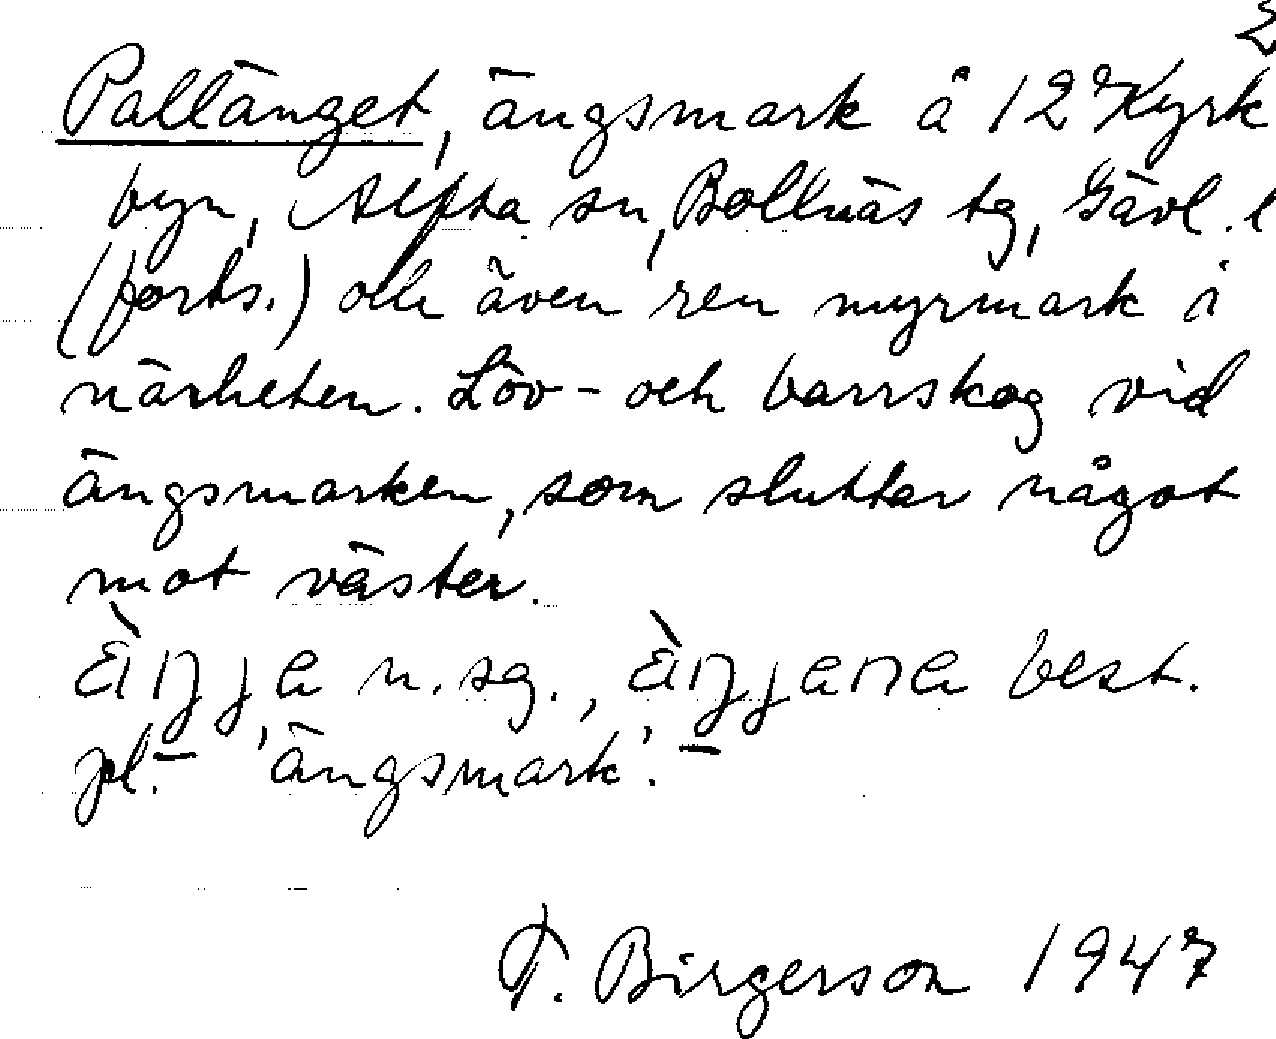 2
Pallänget, ängsmark å 12⁹ Kyrk
byn, Alfta sn, Bollnäs tg, Gävl. l
(forts.) och även ren myrmark i
närheten. Löv- och barrskog vid
ängsmarken, som sluttar något
mot väster.
ä̀ŋja n.sg., ä̀ŋjana best.
pl. – 'ängsmark'. –
T. Birgerson 1947